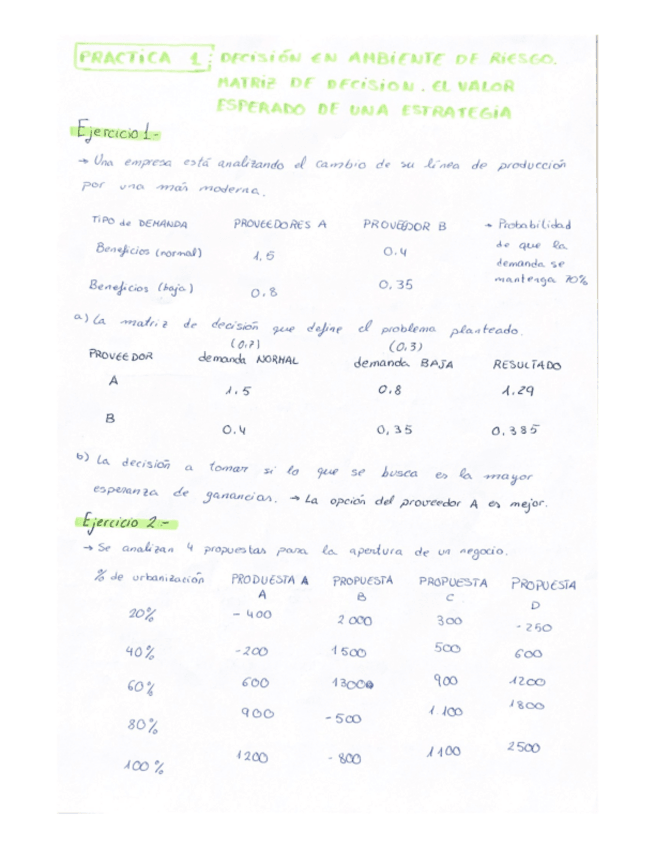 PRACTICA 1: DECISIÓN EN AMBIENTE DE RIESGO.
MATRIZ DE DECISION. EL VALOR
ESPERADO DE UNA ESTRATEGIA
Ejercicio 1.-
→ Una empresa está analizando el cambio de su línea de producción
por una más moderna.
TIPO de DEMANDA PROVEEDORES A PROVEEDOR B → Probabilidad
de que la
demanda se
mantenga 70%
Beneficios (normal) 1.5 0.4
Beneficios (baja) 0.8 0,35
a) La matriz de decisión que define el problema planteado.
(0,7) (0,3)
PROVEEDOR demanda NORMAL demanda BAJA RESULTADO
A 1.5 0.8 1.29
B 0.4 0,35 0.385
b) La decisión a tomar si lo que se busca es la mayor
esperanza de ganancias. → La opción del proveedor A es mejor.
Ejercicio 2.-
→ Se analizan 4 propuestas para la apertura de un negocio.
% de urbanización PRODUESTA A PROPUESTA PROPUESTA PROPUESTA
A B C D
20% - 400 2000 300 - 250
40% -200 1500 500 600
60% 600 13000 900 1200
80% 900 -500 1.100 1800
100% 1200 - 800 1100 2500